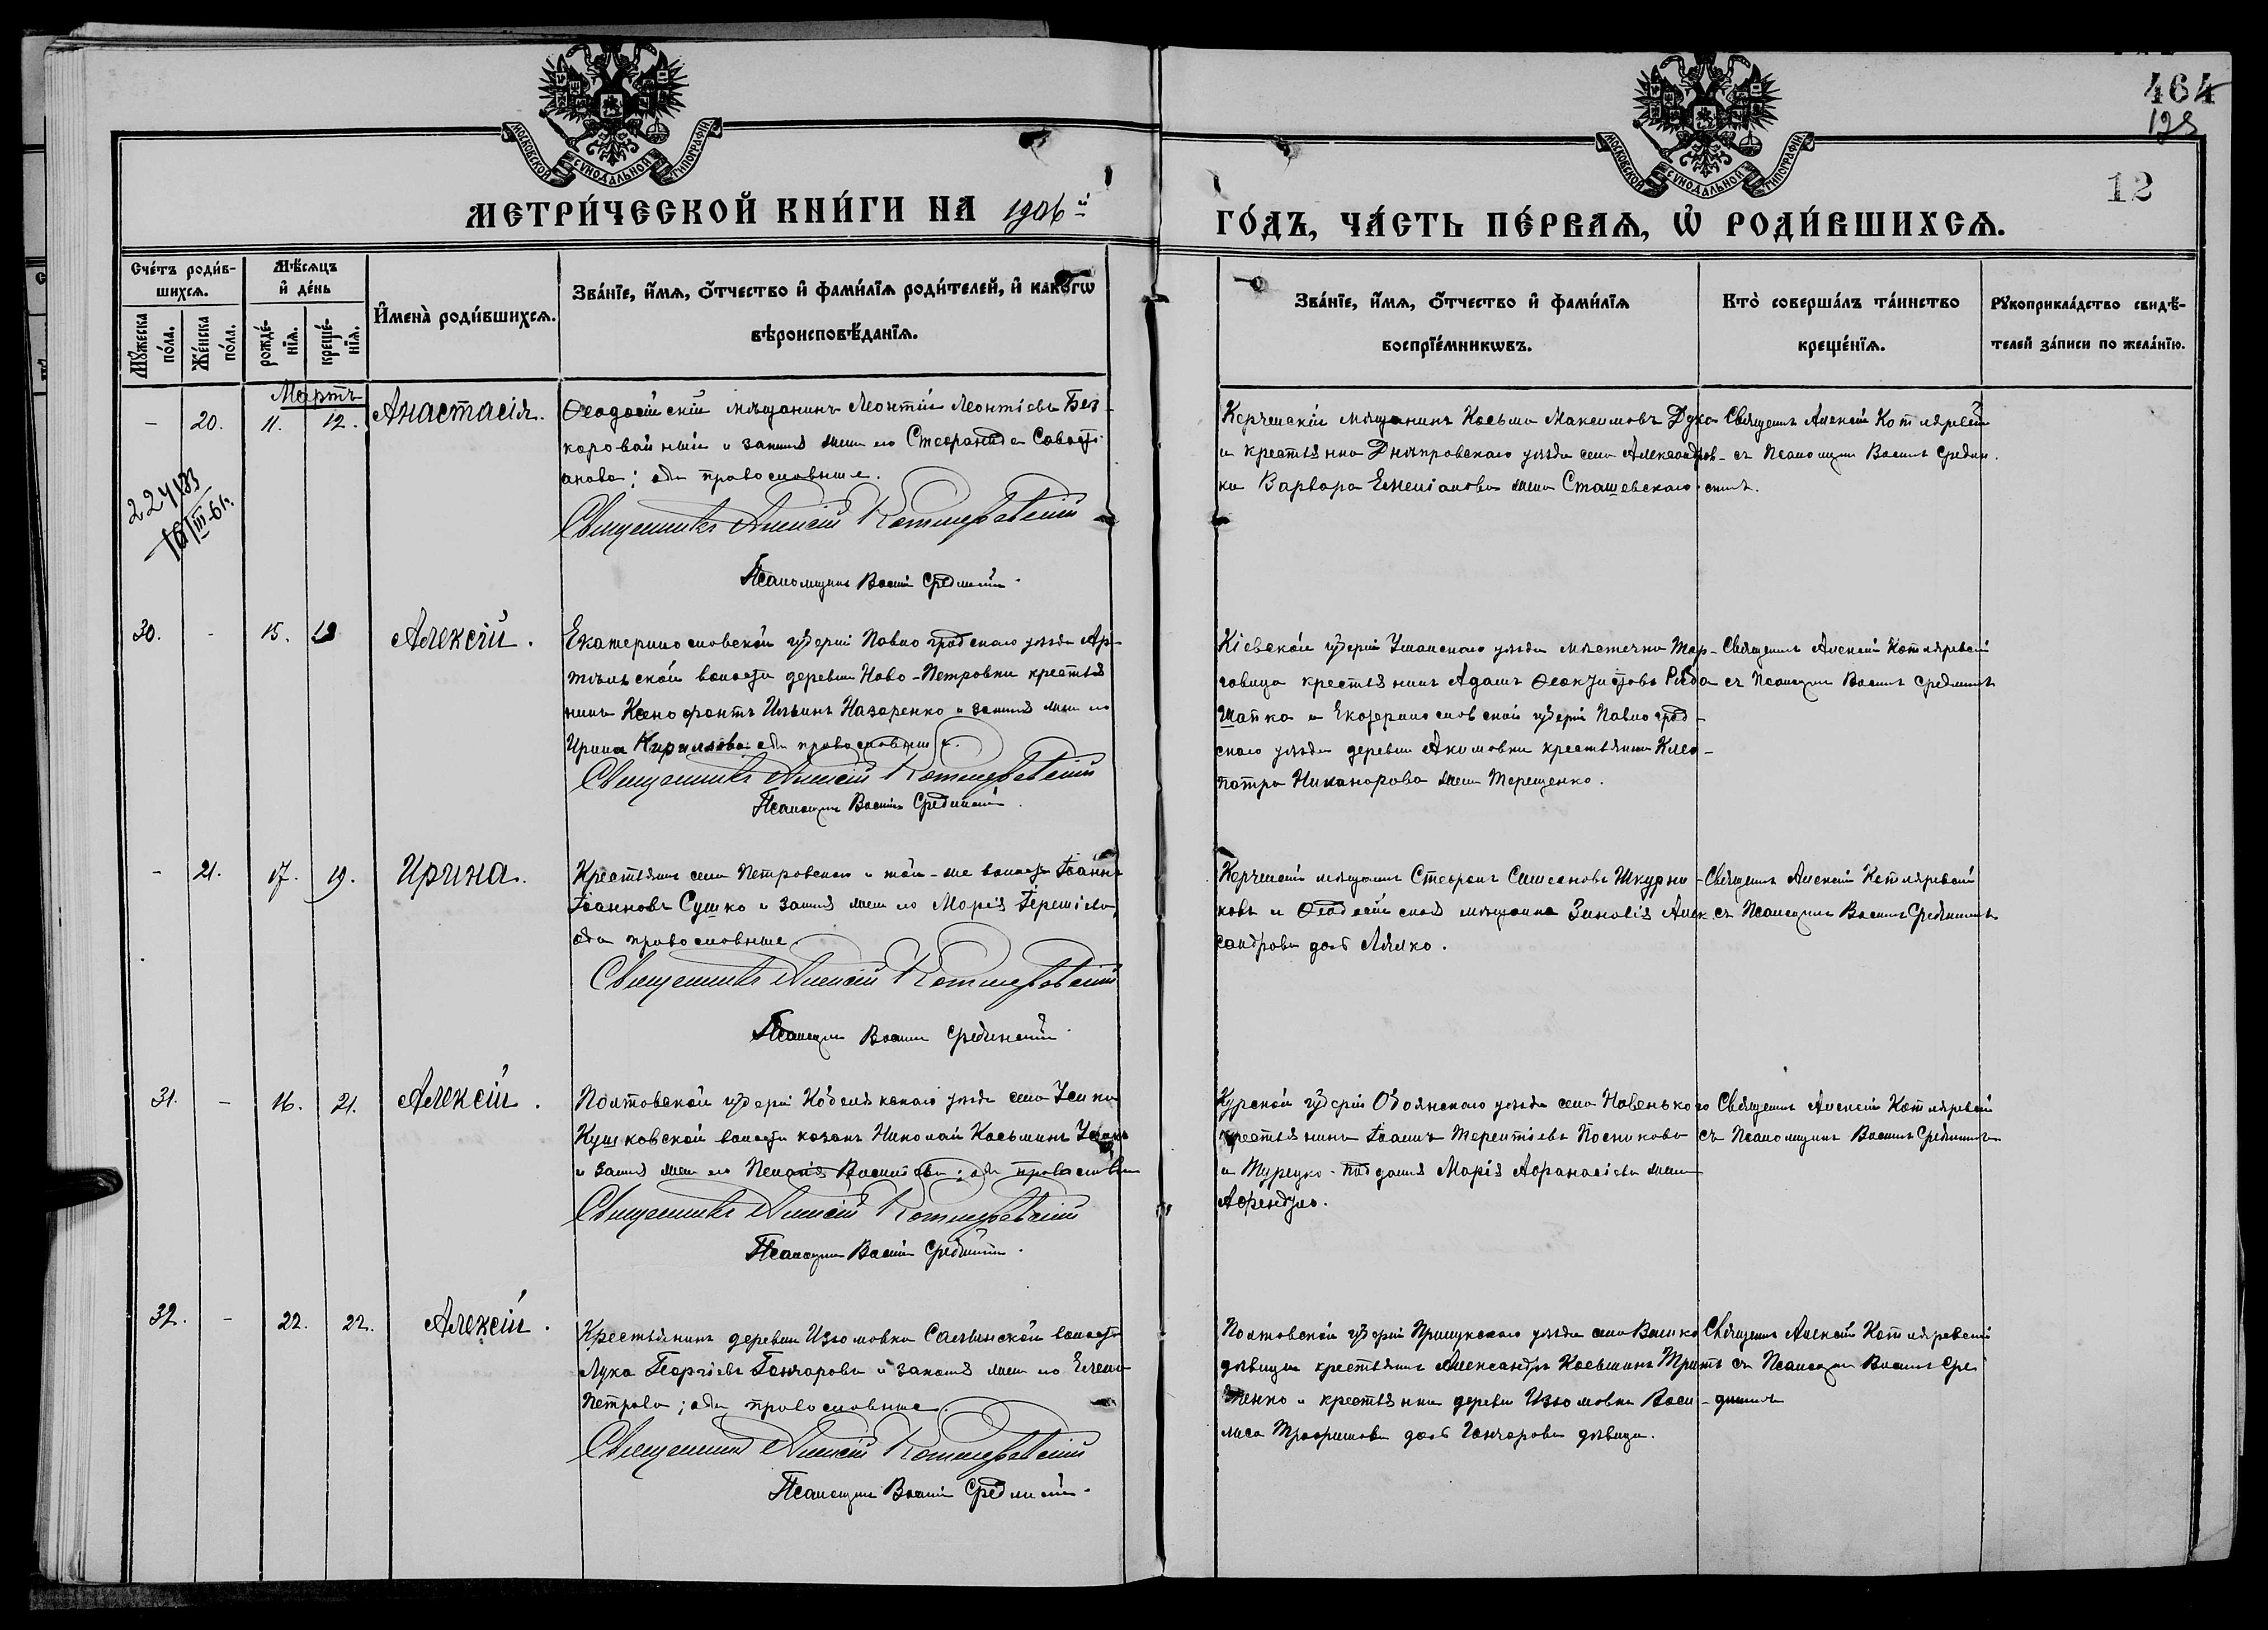 464
128
12
МОСКОВСКОЙ СѴНОДАЛЬНОЙ ТИПОГРАФІИ
МОСКОВСКОЙ СѴНОДАЛЬНОЙ ТИПОГРАФІИ
МЕТРИ́ЧЕСКОЙ КНИ́ГИ НА 1906й
ГО́ДЪ, ЧА́СТЬ ПЕ́РВАѦ, Ѡ҆ РОДИ́ВШИХСѦ.
Сче́тъ роди́в-
шихсѧ.
Мѣ́сѧцъ
и҆ де́нь
И҆мена̀ роди́вшихсѧ.
Зва́нїе, и҆́мѧ, ѻ҆́тчество и҆ фами́лїѧ роди́телей, и҆ како́гѡ
вѣроисповѣ́данїѧ.
Мꙋ́жеска
по́ла.
Же́нска
по́ла.
рожде́-
нїѧ.
креще́-
нїѧ.
Зва́нїе, и҆́мѧ, ѻ҆́тчество и҆ фами́лїѧ
воспрїе́мникѡвъ.
Кто̀ соверша́лъ та́инство
креще́нїѧ.
Рꙋкоприкла́дство свидѣ́-
телей за́писи по жела́нїю.
Мартъ
- 20. 11. 12. Анастасія.
Ѳеодосійскій мѣщанинъ Леонтій Леонтіевъ Без-
коровайный и законная жена его Стефанида Савасті-
анова; оба православные.
Священникъ Алексій Котляревскій
Псаломщикъ Василій Срединскій.
Керченскій мѣщанинъ Косьма Максимовъ Дука
и крестьянка Днѣпровскаго уѣзда села Александров-
ки Варвара Емеліанова жена Сташевскаго.
Священникъ Алексій Котляревскій
съ Псаломщикомъ Василіемъ Средин-
скимъ.
22483
10/III-61г.
30. - 15. 19 Алексій.
Екатеринославской губерніи Павлоградскаго уѣзда Ар-
тельской волости деревни Ново-Петровки крестья-
нинъ Ксенофонтъ Ильинъ Назаренко и законная жена его
Ирина Кириллова оба православные.
Священникъ Алексій Котляревскій
Псаломщикъ Василій Срединскій.
Кіевской губерніи Уманскаго уѣзда мѣстечка Тор-
говица крестьянинъ Адамъ Ѳеоктистовъ Ряба
Шапка и Екатеринославской губерніи Павлоград-
скаго уѣзда деревни Акимовки крестьянка Клео-
патра Никанорова жена Терещенко.
Священникъ Алексій Котляревскій
съ Псаломщикомъ Василіемъ Срединскимъ
- 21. 17. 19. Ирина.
Крестьянинъ села Петровскаго и той-же волости Іоаннъ
Іоанновъ Сушко и законная жена его Марія Іереміева,
оба православные.
Священникъ Алексій Котляревскій
Псаломщикъ Василій Срединскій.
Керченскій мѣщанинъ Стефанъ Симеоновъ Шкурни-
ковъ и Ѳеодосійская мѣщанка Зиновія Алек-
сандрова дочь Лялко.
Священникъ Алексій Котляревскій
съ Псаломщикомъ Василіемъ Срединскимъ
31. - 16. 21. Алексій.
Полтавской губерніи Кобелякскаго уѣзда села
Кушковской волости козакъ Николай Косьминъ
и законная жена его Пелагія Василіева; оба православные
Священникъ Алексій Котляревскій
Псаломщикъ Василій Срединскій.
Курской губерніи Обоянскаго уѣзда села Новенького
крестьянинъ Іоаннъ Терентіевъ Посниковъ
и Турецко-подданная Марія Аѳанасіева жена
Афендуло.
Священникъ Алексій Котляревскій
съ Псаломщикомъ Василіемъ Срединскимъ
32. - 22. 22. Алексій.
Крестьянинъ деревни Изюмовка Салынской волости
Лука Георгіевъ Гончаровъ и законная жена его Елена
Петрова; оба православные.
Священникъ Алексій Котляревскій
Псаломщикъ Василій Срединскій.
Полтавской губерніи Прилукскаго уѣзда села Велико
дѣвицы крестьянинъ Александръ Косьминъ
и крестьянка деревни Изюмовки Васи-
лиса Трофимова дочь Гончарова дѣвица.
Священникъ Алексій Котляревскій
съ Псаломщикомъ Василіемъ Сре-
динскимъ